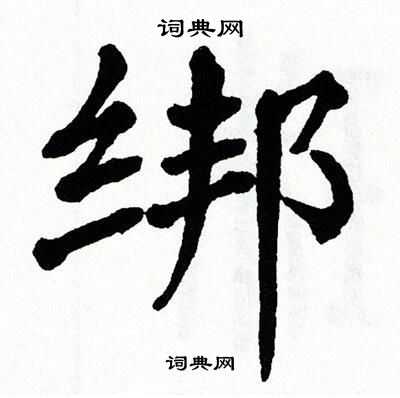 词典网
绑
词典网